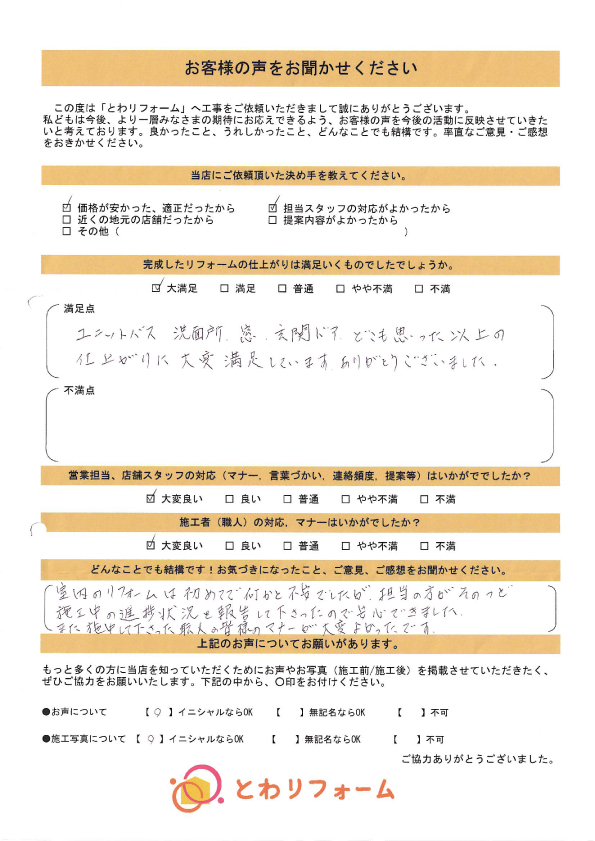 お客様の声をお聞かせください
この度は「とわリフォーム」へ工事をご依頼いただきまして誠にありがとうございます。
私どもは今後、より一層みなさまの期待にお応えできるよう、お客様の声を今後の活動に反映させていきた
いと考えております。良かったこと、うれしかったこと、どんなことでも結構です。率直なご意見・ご感想
をおきかせください。
当店にご依頼頂いた決め手を教えてください。
☑ 価格が安かった、適正だったから ☑ 担当スタッフの対応がよかったから
□ 近くの地元の店舗だったから □ 提案内容がよかったから
□ その他（ ）
完成したリフォームの仕上がりは満足いくものでしたでしょうか。
☑ 大満足 □ 満足 □ 普通 □ やや不満 □ 不満
満足点
ユニットバス 洗面所、窓、玄関ドア どこも思った以上の
仕上がりに大変満足しています ありがとうございました。
不満点
営業担当、店舗スタッフの対応（マナー，言葉づかい，連絡頻度，提案等）はいかがででしたか？
☑ 大変良い □ 良い □ 普通 □ やや不満 □ 不満
施工者（職人）の対応，マナーはいかがでしたか？
☑ 大変良い □ 良い □ 普通 □ やや不満 □ 不満
どんなことでも結構です！お気づきになったこと、ご意見、ご感想をお聞かせください。
室内のリフォームは初めてで何かと不安でしたが、担当の方がそのつど
施工中の進捗状況を報告して下さったので安心できました。
また施工して下さった職人の皆様のマナーが大変よかったです。
上記のお声についてお願いがあります。
もっと多くの方に当店を知っていただくためにお声やお写真（施工前/施工後）を掲載させていただきたく、
ぜひご協力をお願いいたします。下記の中から、〇印をお付けください。
●お声について 【 ○ 】イニシャルならOK 【 】無記名ならOK 【 】不可
●施工写真について 【 ○ 】イニシャルならOK 【 】無記名ならOK 【 】不可
ご協力ありがとうございました。
とわリフォーム